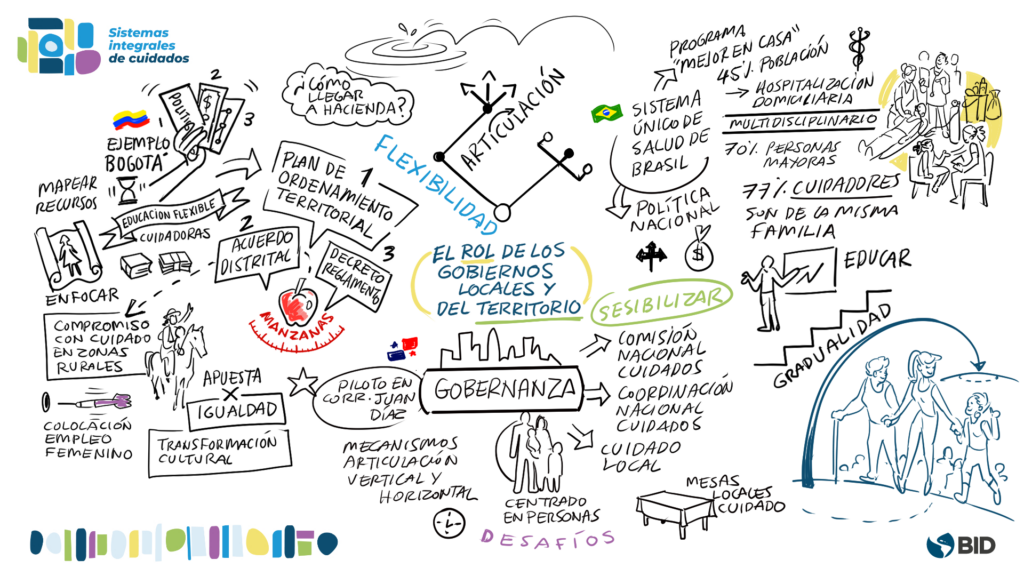 Sistemas
integrales
de cuidados
EJEMPLO
BOGOTA"
2
$
3
MAPEAR
RECURSOS
EDUCACION FLEXIBLE
CUIDADORAS
ENFOCAR
¿CÓMO
LLEGAR
A HACIENDA?
PLAN DE 1
ORDENAMIENTO
TERRITORIAL
2
ACUERDO
DISTRITAL
3
DECRETO
REGLAMENTO
MANZANAS
COMPROMISO
CON CUIDADO
EN ZONAS
RURALES
COLOCACIÓN
EMPLEO
FEMENINO
APUESTA
X
IGUALDAD
TRANSFORMACIÓN
CULTURAL
FLEXIBILIDAD
ARTICULACIÓN
EL ROL DE LOS
GOBIERNOS
LOCALES Y
DEL TERRITORIO
PILOTO EN
CORR. JUAN
DÍAZ
GOBERNANZA
MECANISMOS
ARTICULACIÓN
VERTICAL Y
HORIZONTAL
CENTRADO
EN PERSONAS
DESAFÍOS
SESIBILIZAR
COMISIÓN
NACIONAL
CUIDADOS
COORDINACIÓN
NACIONAL
CUIDADOS
CUIDADO
LOCAL
MESAS
LOCALES
CUIDADO
SISTEMA
ÚNICO DE
SALUD DE
BRASIL
POLÍTICA
NACIONAL
$
PROGRAMA
"MEJOR EN CASA"
45% POBLACIÓN
HOSPITALIZACIÓN
DOMICILIARIA
MULTIDISCIPLINARIO
70% PERSONAS
MAYORAS
77% CUIDADORES
SON DE LA MISMA
FAMILIA
EDUCAR
GRADUALIDAD
BID